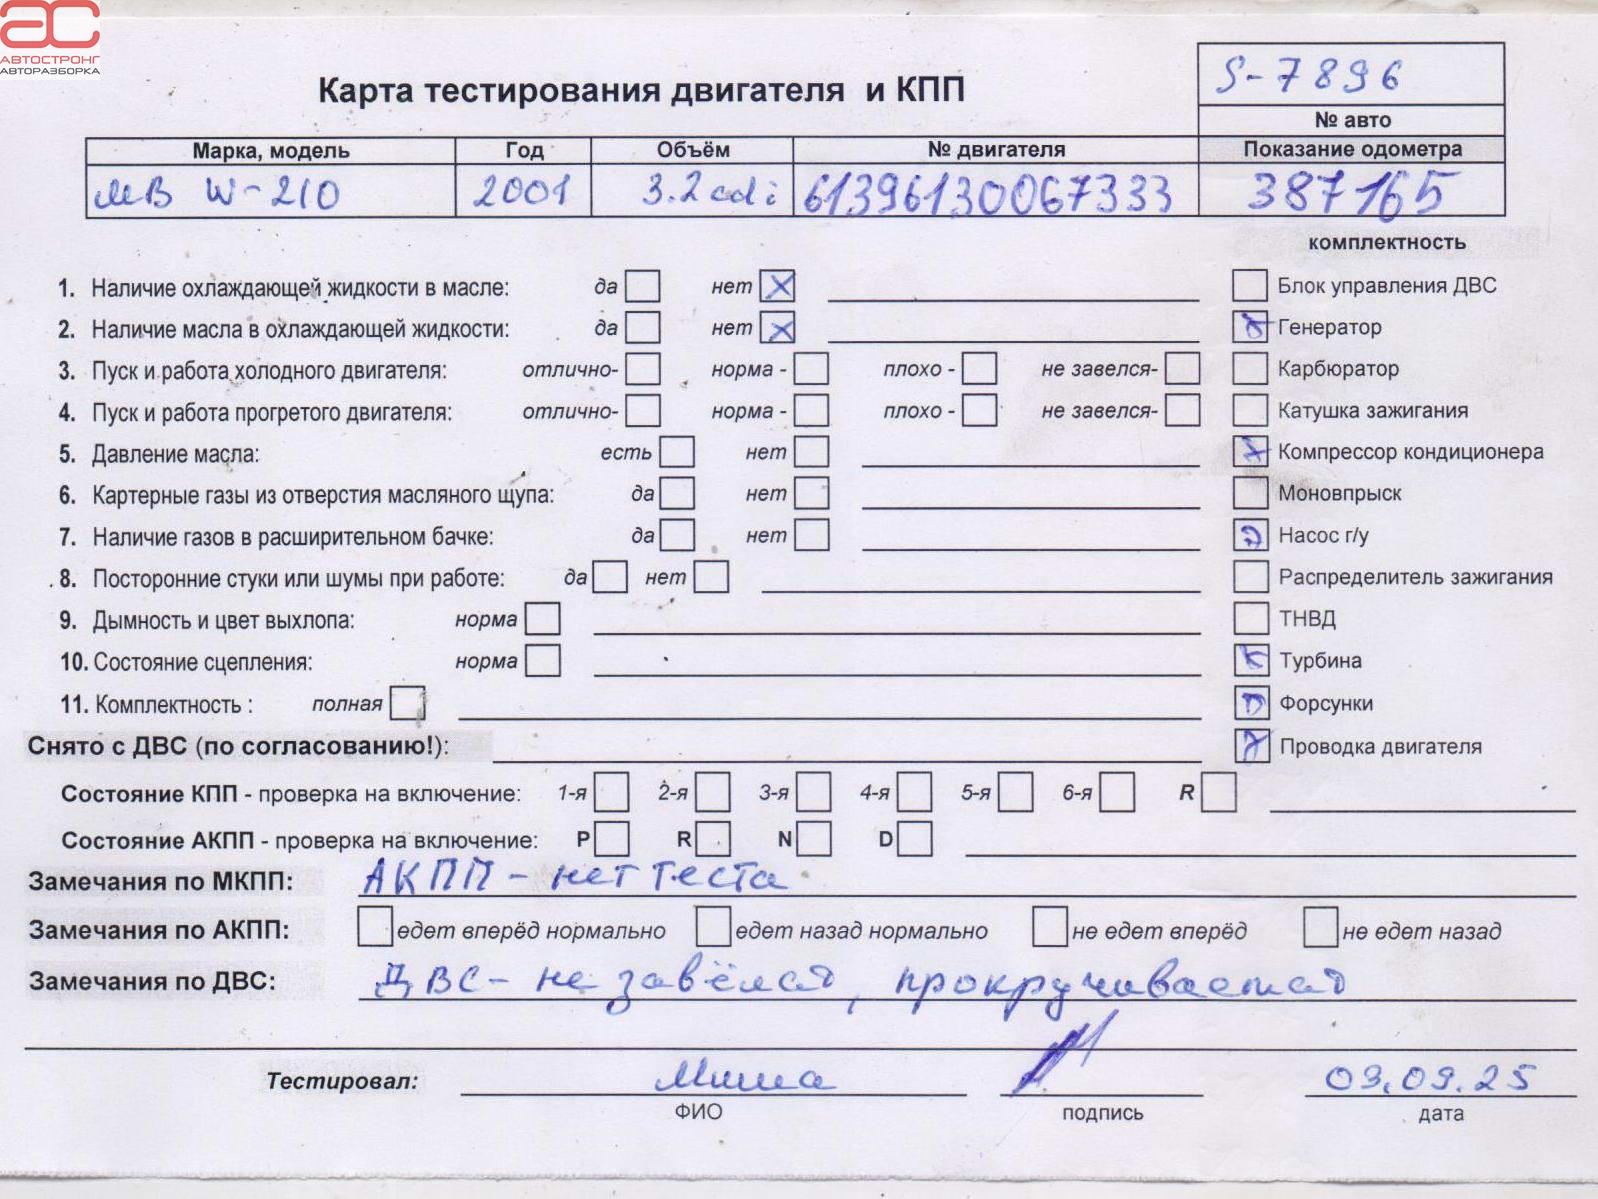 АС
АВТОСТРОНГ
АВТОРАЗБОРКА
S-7896
Карта тестирования двигателя и КПП
№ авто
Марка, модель Год Объём № двигателя Показание одометра
МВ W-210 2001 3.2 cdi 61396130067333 387165
комплектность
1. Наличие охлаждающей жидкости в масле: да нет X Блок управления ДВС
2. Наличие масла в охлаждающей жидкости: да нет X Генератор
3. Пуск и работа холодного двигателя: отлично- норма - плохо - не завелся- Карбюратор
4. Пуск и работа прогретого двигателя: отлично- норма - плохо - не завелся- Катушка зажигания
5. Давление масла: есть нет Компрессор кондиционера
6. Картерные газы из отверстия масляного щупа: да нет Моновпрыск
7. Наличие газов в расширительном бачке: да нет Насос г/у
8. Посторонние стуки или шумы при работе: да нет Распределитель зажигания
9. Дымность и цвет выхлопа: норма ТНВД
10. Состояние сцепления: норма Турбина
11. Комплектность : полная Форсунки
Снято с ДВС (по согласованию!): Проводка двигателя
Состояние КПП - проверка на включение: 1-я 2-я 3-я 4-я 5-я 6-я R
Состояние АКПП - проверка на включение: P R N D
Замечания по МКПП: АКПП - нет теста
Замечания по АКПП: едет вперёд нормально едет назад нормально не едет вперёд не едет назад
Замечания по ДВС: ДВС - не завёлся, прокручивается
Тестировал: Миша 09.09.25
ФИО подпись дата